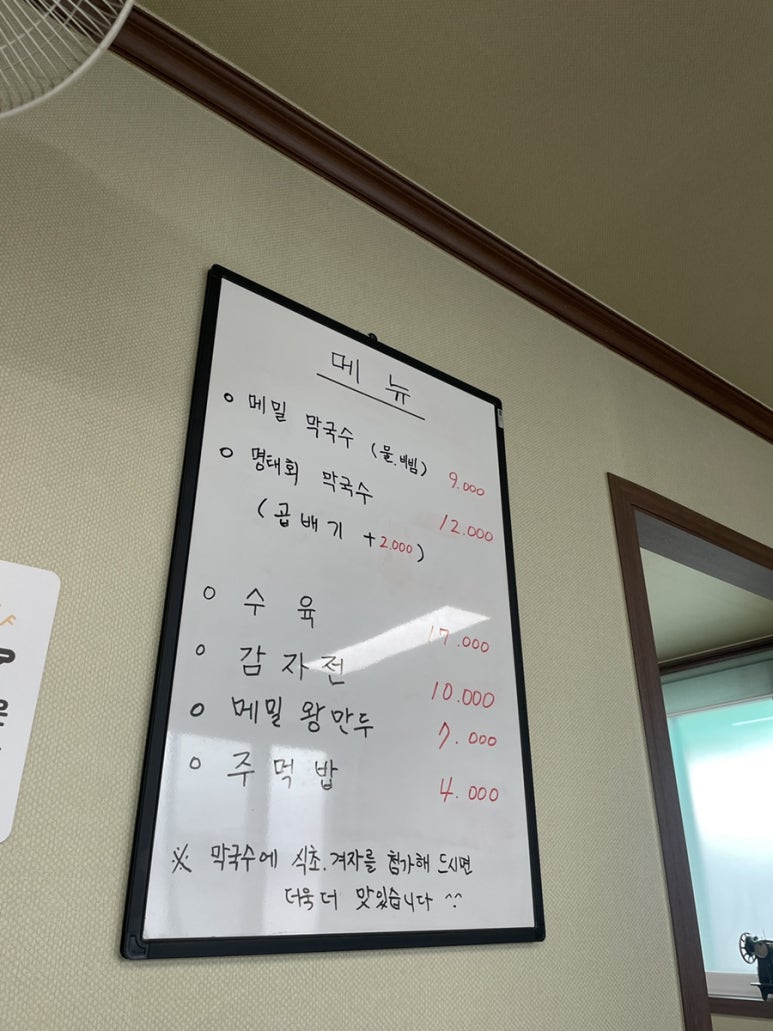 메 뉴
o 메밀 막국수 (물.비빔) 9.000
o 명태회 막국수 12.000
(곱배기 +2.000)
o 수 육 17.000
o 감 자 전 10.000
o 메밀 왕만두 7.000
o 주 먹 밥 4.000
※ 막국수에 식초.겨자를 첨가해 드시면
더욱 더 맛있습니다 ^^